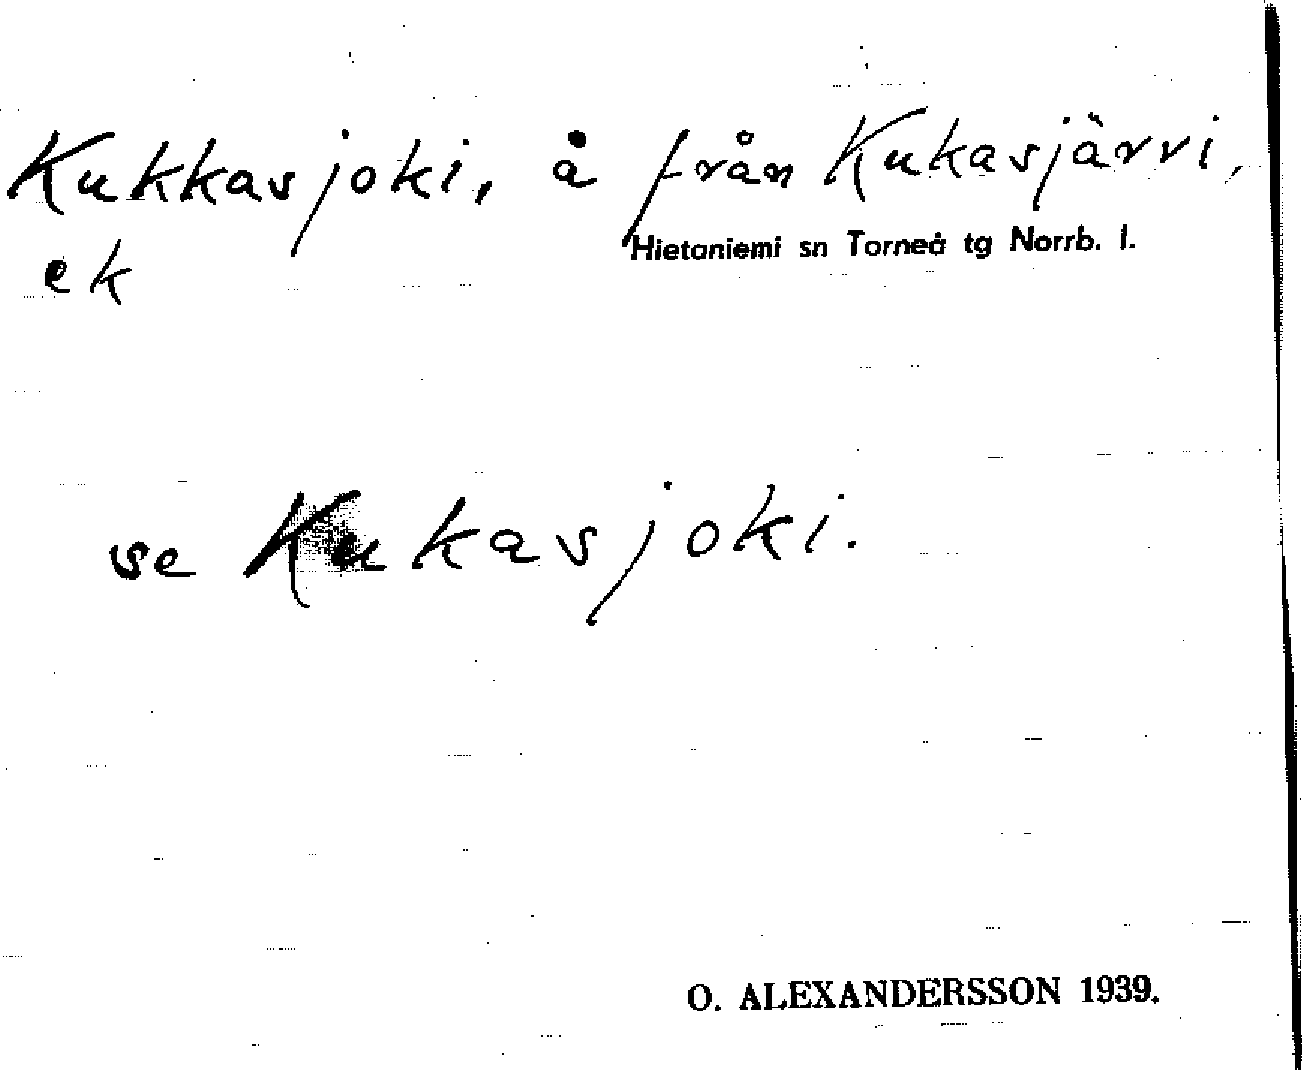 Kukkasjoki, å från Kukasjärvi,
ek
Hietaniemi sn Torneå tg Norrb. l.
se Kukasjoki.
O. ALEXANDERSSON 1939.